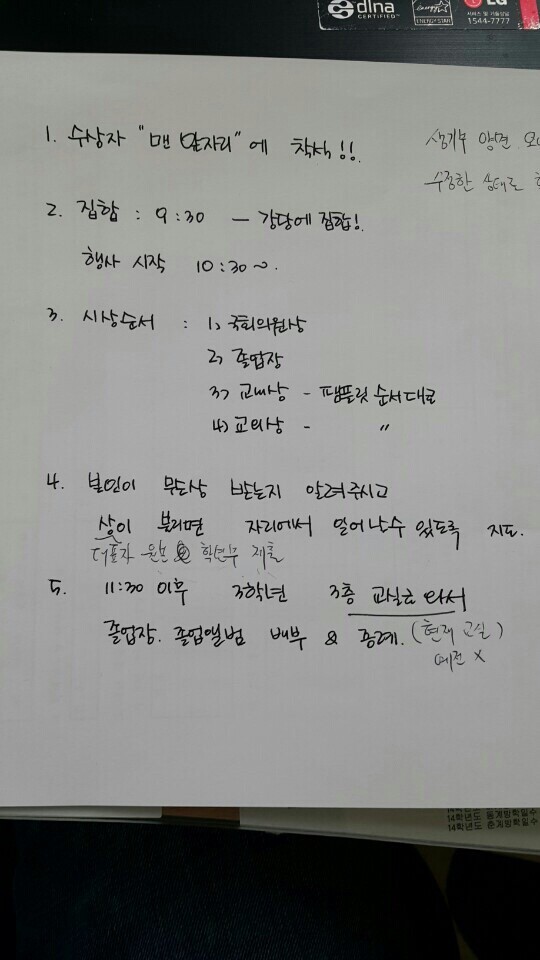 dlna
CERTIFIED
ENERGY STAR
LG
서비스 및 기술상담
1544-7777
1. 수상자 "맨 앞자리"에 착석!!
생기부 양면
수정한 상태로
2. 집합 : 9:30 — 강당에 집합!
행사 시작 10:30~.
3. 시상순서 : 1) 국회의원상
2) 졸업장
3) 교내상 - 팸플릿 순서대로
4) 교외상 - 〃
4. 본인이 무슨상 받는지 알려주시고
상이 불리면 자리에서 일어날수 있도록 지도.
대표자 원본 학년부 제출
5. 11:30 이후 3학년 3층 교실로 와서
졸업장. 졸업앨범 배부 & 종례. (현재 교실)
예전 X